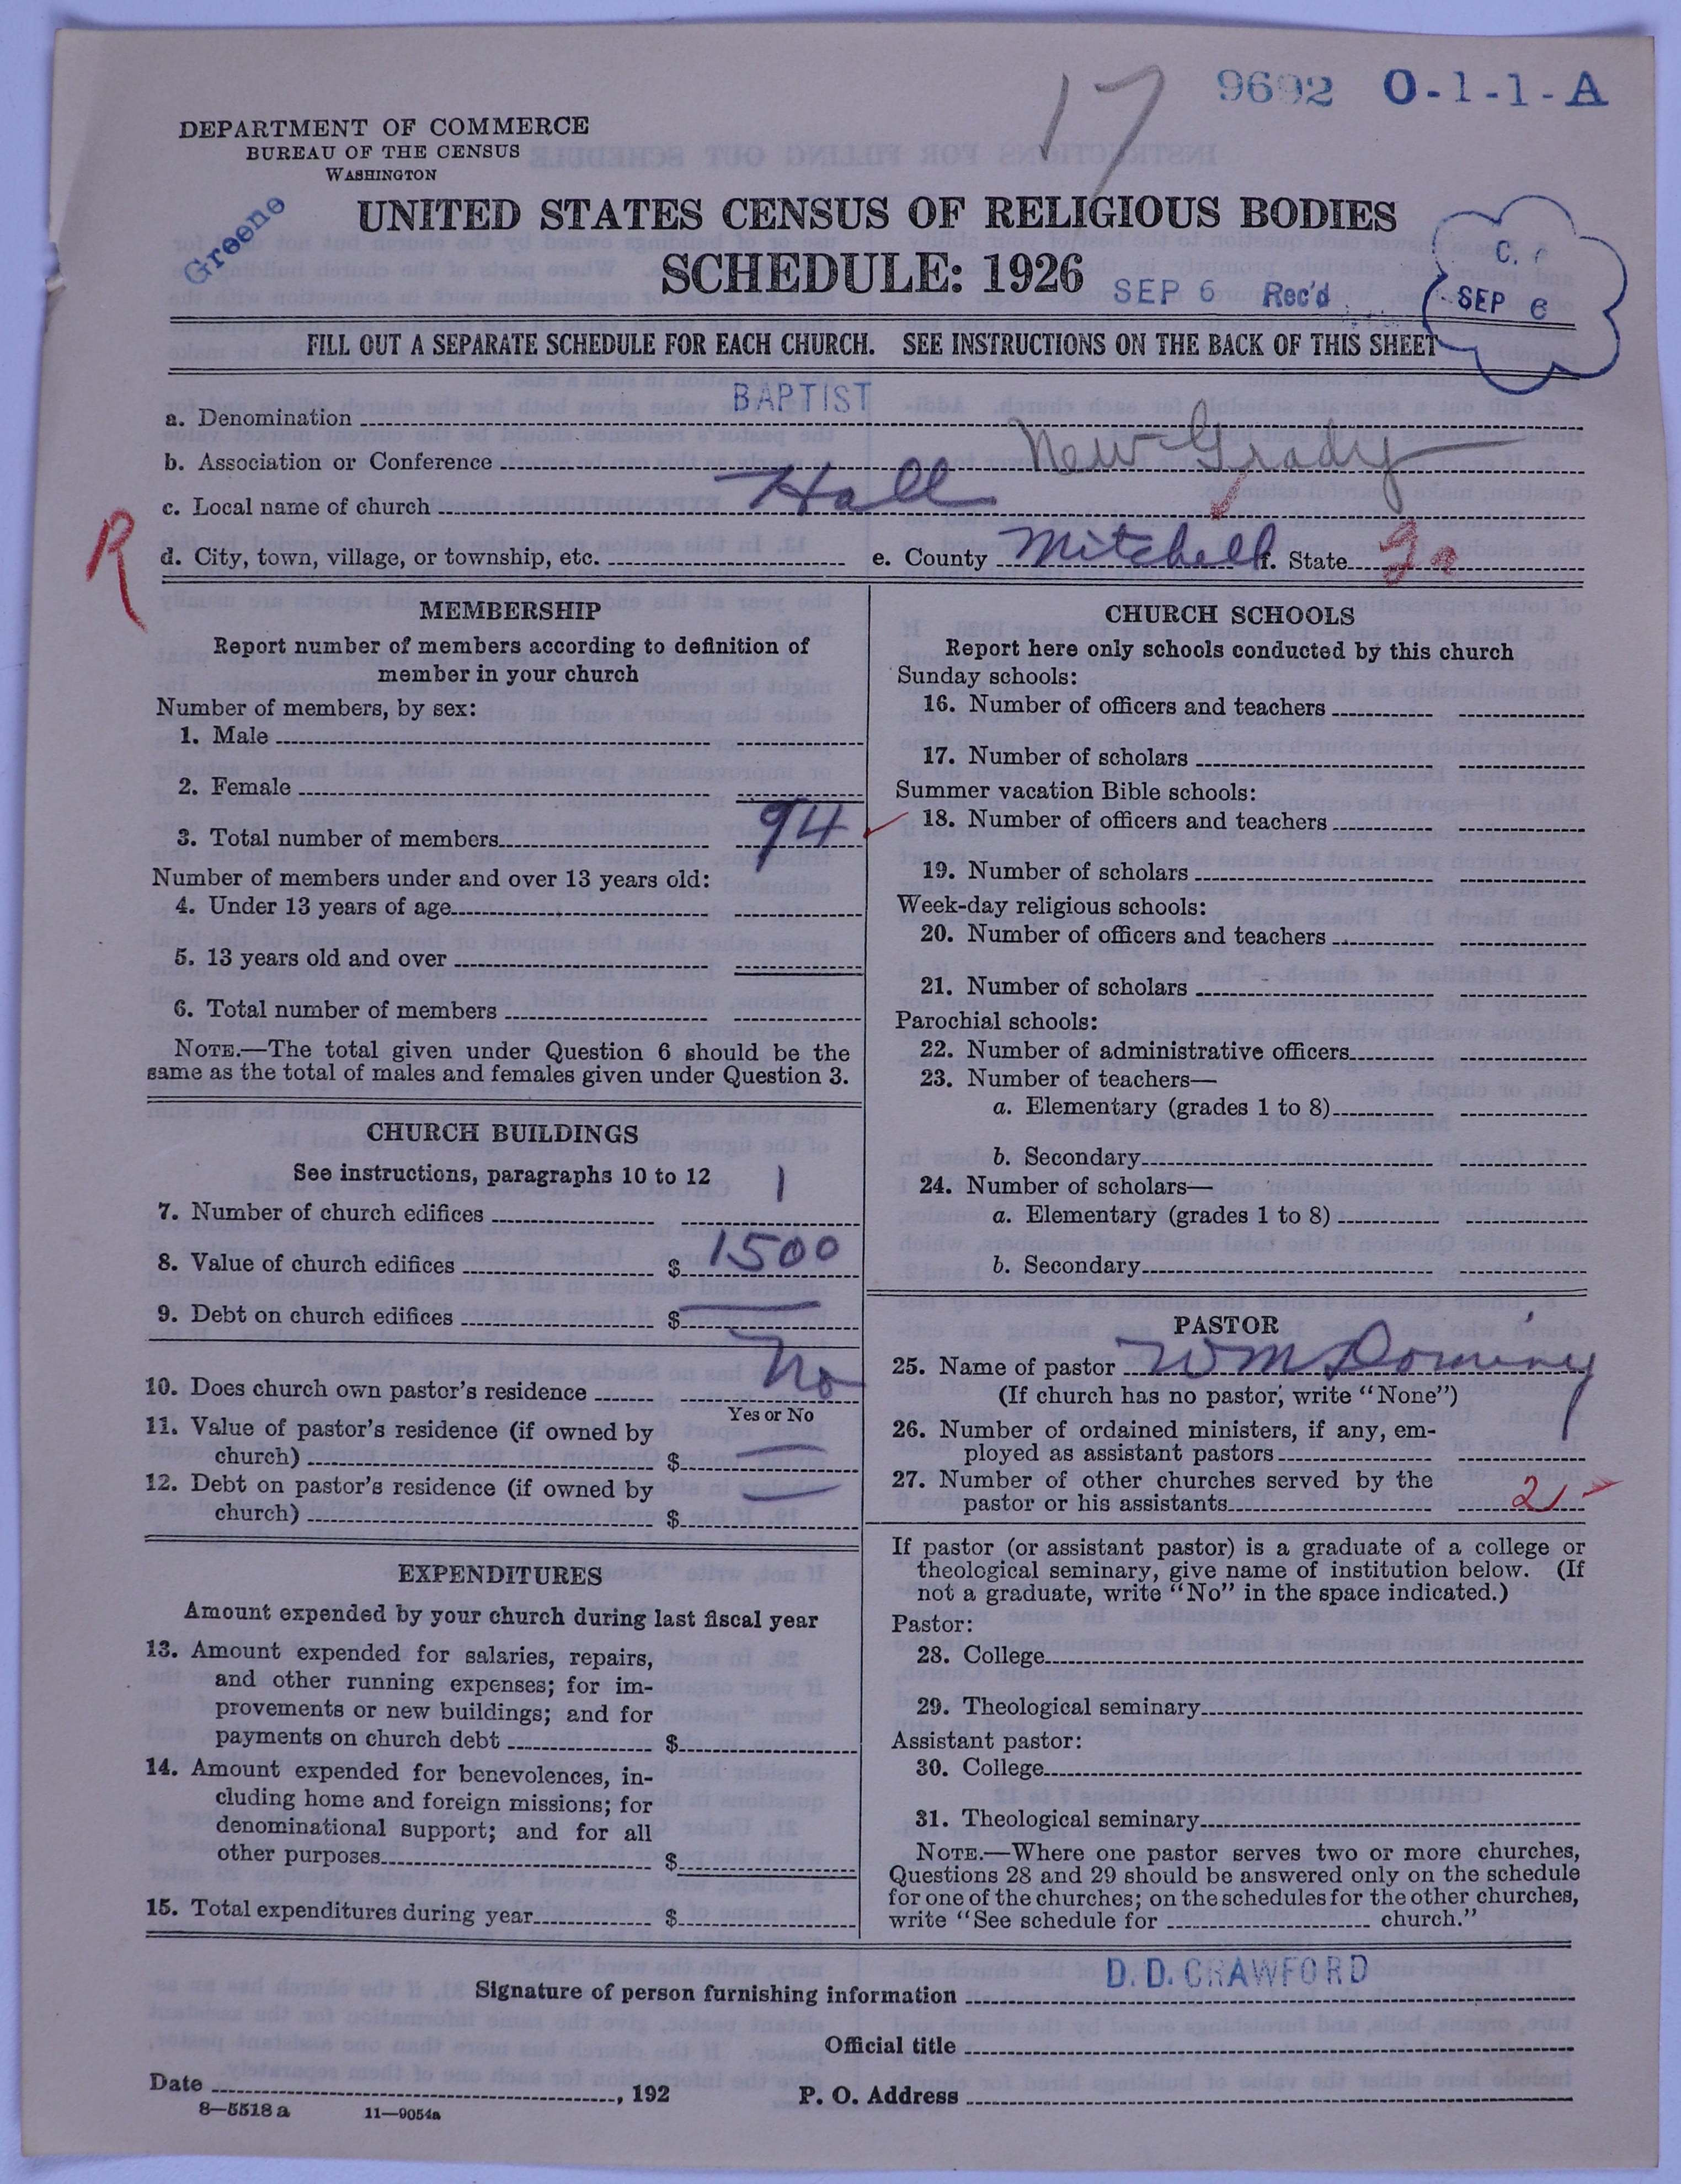 17 9692 O-1-1-A
DEPARTMENT OF COMMERCE
BUREAU OF THE CENSUS
WASHINGTON
Greene
UNITED STATES CENSUS OF RELIGIOUS BODIES
SCHEDULE: 1926
SEP 6 Rec'd
C.
SEP 6
FILL OUT A SEPARATE SCHEDULE FOR EACH CHURCH. SEE INSTRUCTIONS ON THE BACK OF THIS SHEET
a. Denomination BAPTIST
b. Association or Conference New-Grady
c. Local name of church Hall
R
d. City, town, village, or township, etc. e. County Mitchell f. State Ga
MEMBERSHIP
Report number of members according to definition of
member in your church
Number of members, by sex:
1. Male
2. Female
3. Total number of members 94
Number of members under and over 13 years old:
4. Under 13 years of age
5. 13 years old and over
6. Total number of members
NOTE.—The total given under Question 6 should be the
same as the total of males and females given under Question 3.
CHURCH BUILDINGS
See instructions, paragraphs 10 to 12
7. Number of church edifices 1
8. Value of church edifices $ 1500
9. Debt on church edifices $ —
10. Does church own pastor's residence No
Yes or No
11. Value of pastor's residence (if owned by
church) $ —
12. Debt on pastor's residence (if owned by
church) $ —
EXPENDITURES
Amount expended by your church during last fiscal year
13. Amount expended for salaries, repairs,
and other running expenses; for im-
provements or new buildings; and for
payments on church debt $
14. Amount expended for benevolences, in-
cluding home and foreign missions; for
denominational support; and for all
other purposes $
15. Total expenditures during year $
CHURCH SCHOOLS
Report here only schools conducted by this church
Sunday schools:
16. Number of officers and teachers
17. Number of scholars
Summer vacation Bible schools:
18. Number of officers and teachers
19. Number of scholars
Week-day religious schools:
20. Number of officers and teachers
21. Number of scholars
Parochial schools:
22. Number of administrative officers
23. Number of teachers—
a. Elementary (grades 1 to 8)
b. Secondary
24. Number of scholars—
a. Elementary (grades 1 to 8)
b. Secondary
PASTOR
25. Name of pastor Wm Dominy
(If church has no pastor, write "None")
26. Number of ordained ministers, if any, em-
ployed as assistant pastors
27. Number of other churches served by the
pastor or his assistants 2
If pastor (or assistant pastor) is a graduate of a college or
theological seminary, give name of institution below. (If
not a graduate, write "No" in the space indicated.)
Pastor:
28. College
29. Theological seminary
Assistant pastor:
30. College
31. Theological seminary
NOTE.—Where one pastor serves two or more churches,
Questions 28 and 29 should be answered only on the schedule
for one of the churches; on the schedules for the other churches,
write "See schedule for church."
Signature of person furnishing information D. D. CRAWFORD
Official title
Date , 192 P. O. Address
8—5518 a 11—9054a